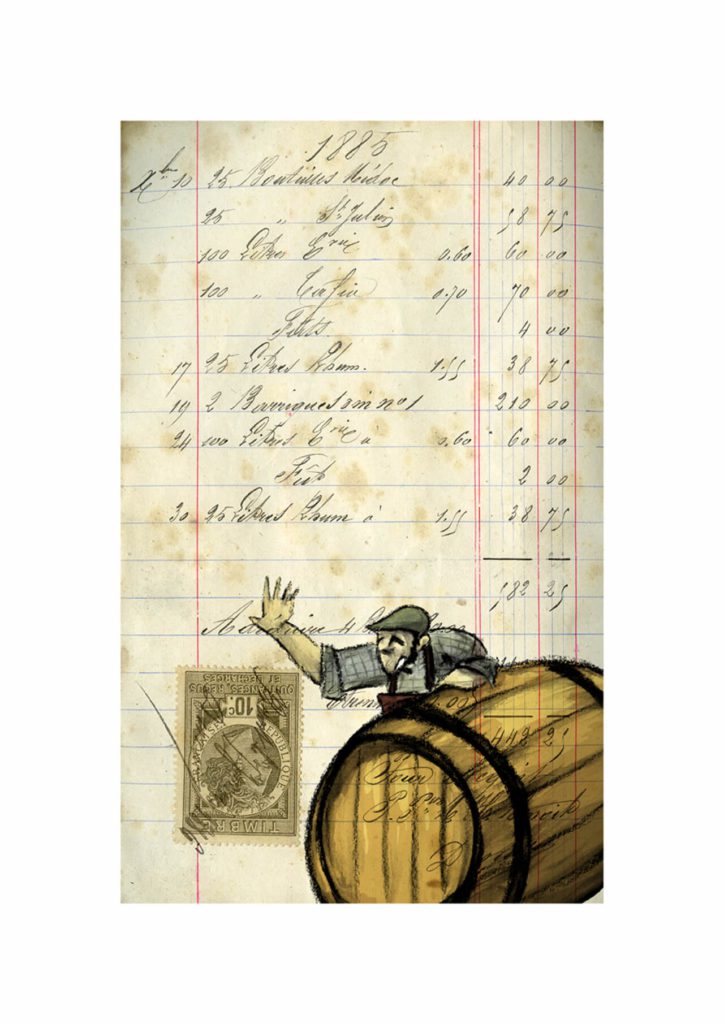 1885
Xbre 10 25 Bouteilles Médoc 40 00
25 " St Julien 58 75
100 Litres 0.60 60 00
100 " Tafia 0.70 70 00
Fûts. 4 00
17 25 Litres Rhum. 1.55 38 75
19 2 Barriques vin no 1 210 00
24 100 Litres à 0.60 60 00
Fût 2 00
30 25 Litres Rhum à 1.55 38 75
582 25
442 25
Pour
QUITTANCES, REÇUS
ET DÉCHARGES
10c
RÉPUBLIQUE FRANÇAISE
TIMBRE